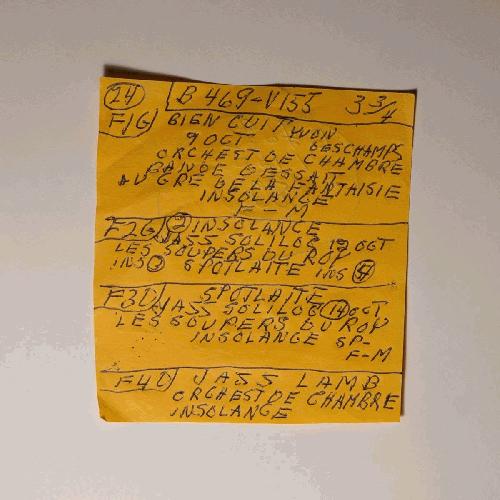 24 B 469-V155 3 3/4
F1G BIEN CUIT WON
9 OCT DESCHAMPS
ORCHEST DE CHAMBRE
BANDE DESSAIT
AU GRE DE LA FANTAISIE
INSOLANGE
F-M
F2G 2 INSOLANCE
JASS SOLILOC 12 OCT
LES SOUPERS DU ROY
INS SPOTLAITE INS
F3D SPOTLAITE
JASS SOLILOC 14 OCT
LES SOUPERS DU ROY
INSOLANGE SP-
F-M
F4D JASS LAMB
ORCHEST DE CHAMBRE
INSOLANGE